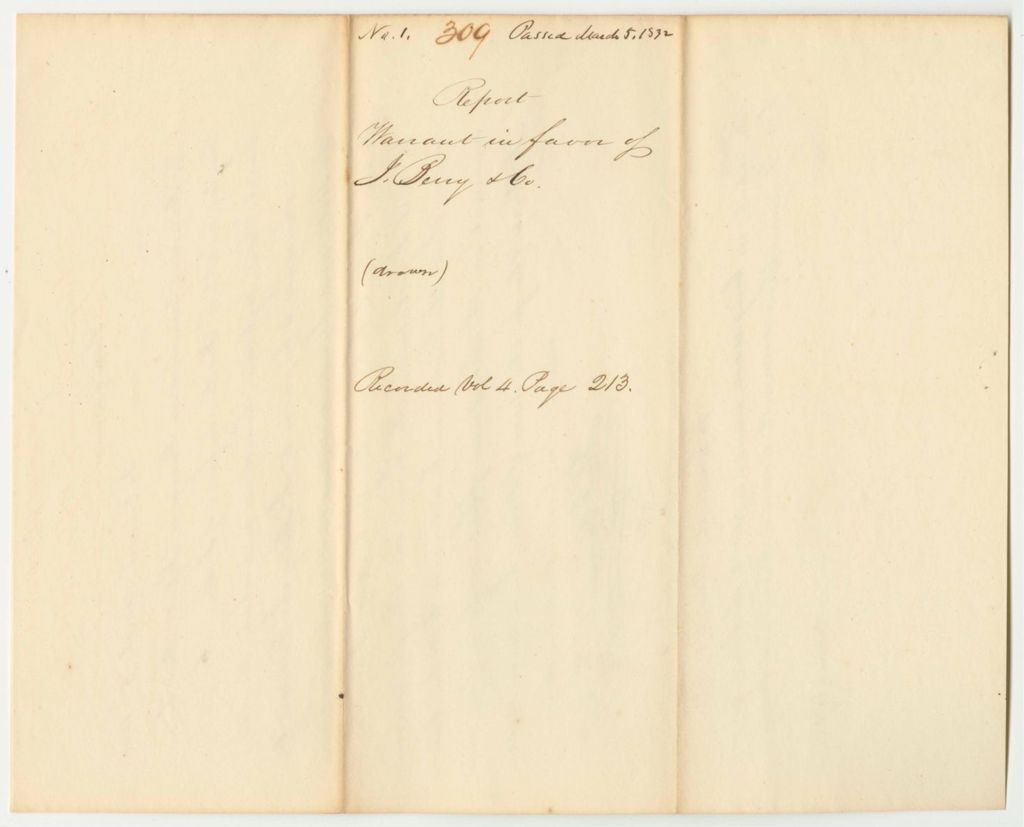 No. 1. 309 Passed March 5. 1832
Report
Warrant in favor of
J. Berry & Co.
(drawn)
Recorded Vol 4. Page 213.